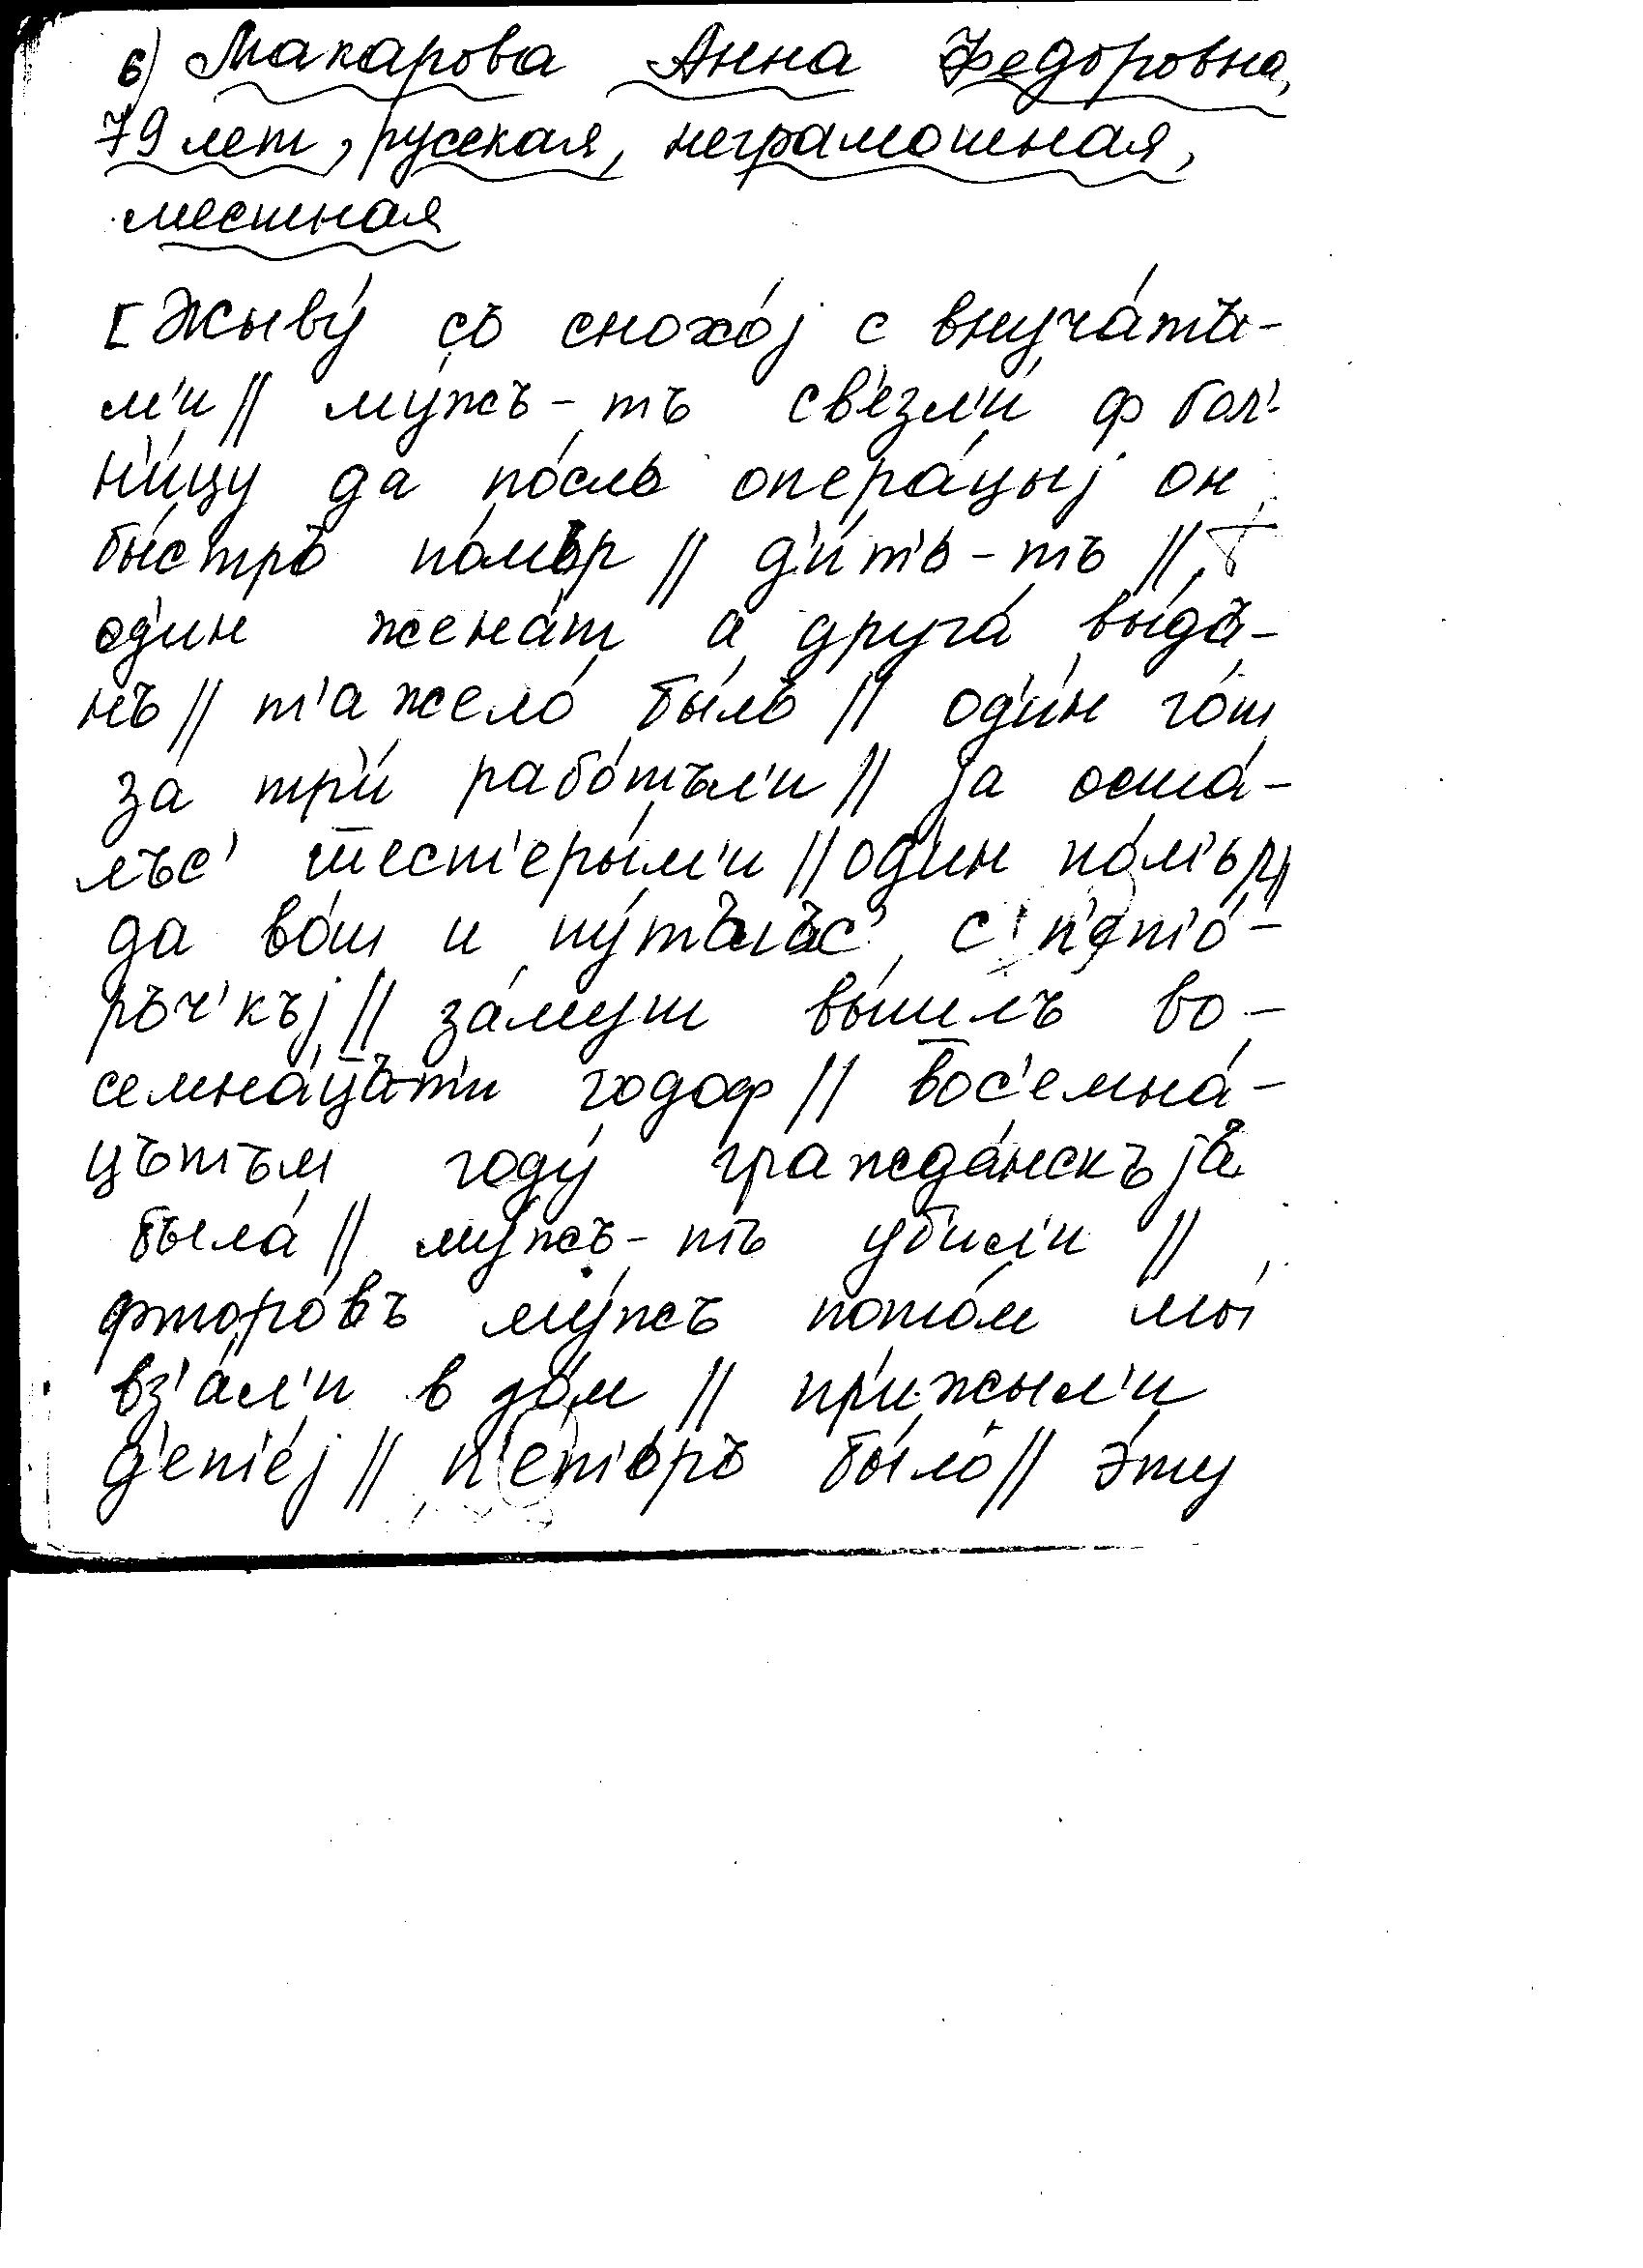 6) Макарова Анна Федоровна,
79 лет, русская, неграмотная,
местная
[Жыву́ съ снохо́j с внуча́тъ-
м'и // му́жъ-тъ св'езл'и́ ф бол'-
н'и́цу да по́сль опера́цыj он
бы́стръ по́м'ьр // д'и́т'ь-тъ //
од'ин жена́т а друга́ вы́дъ-
нъ // т'ажело́ бы́лъ // од'и́н го́т
за тр'и́ рабо́тъл'и // jа оста́-
лъс' шест'еры́м'и // од'ин по́м'ьр
да во́т и пу́тълъс' с п'ат'о́-
ръч'къj // за́муш вы́шлъ во-
семна́цът'и годоф // вос'емна́-
цътъм году́ гражда́нскъjа
была́ // му́жъ-тъ уб'ил'и //
фторо́въ му́жъ пото́м мы́
вз'а́л'и в до́м // пр'ижыл'и
д'ет'е́j // п'е́т'ьръ бы́лъ // э́ту